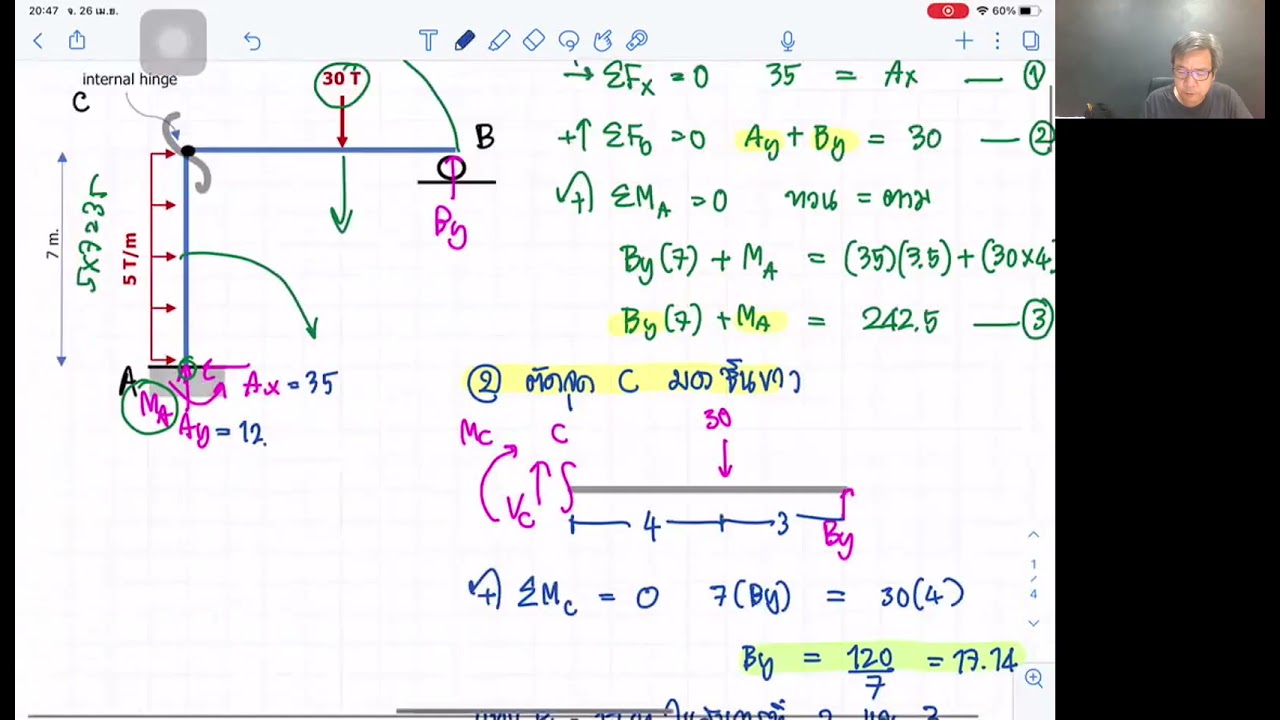 20:47 จ. 26 เม.ย.
60%
internal hinge
C
30 T
B
By
7 m.
5x7=35
5 T/m
A
Ax = 35
MA
Ay = 12.
→ ΣFx = 0 35 = Ax — ①
+↑ ΣFy = 0 Ay + By = 30 — ②
+) ΣMA = 0 ทวน = ตาม
By(7) + MA = (35)(3.5) + (30x4)
By(7) + MA = 242.5 — ③
② ตัดจุด C
Mc C 30
Vc
4 3
By
+) ΣMc = 0 7(By) = 30(4)
By = 120/7 = 17.14
1/4